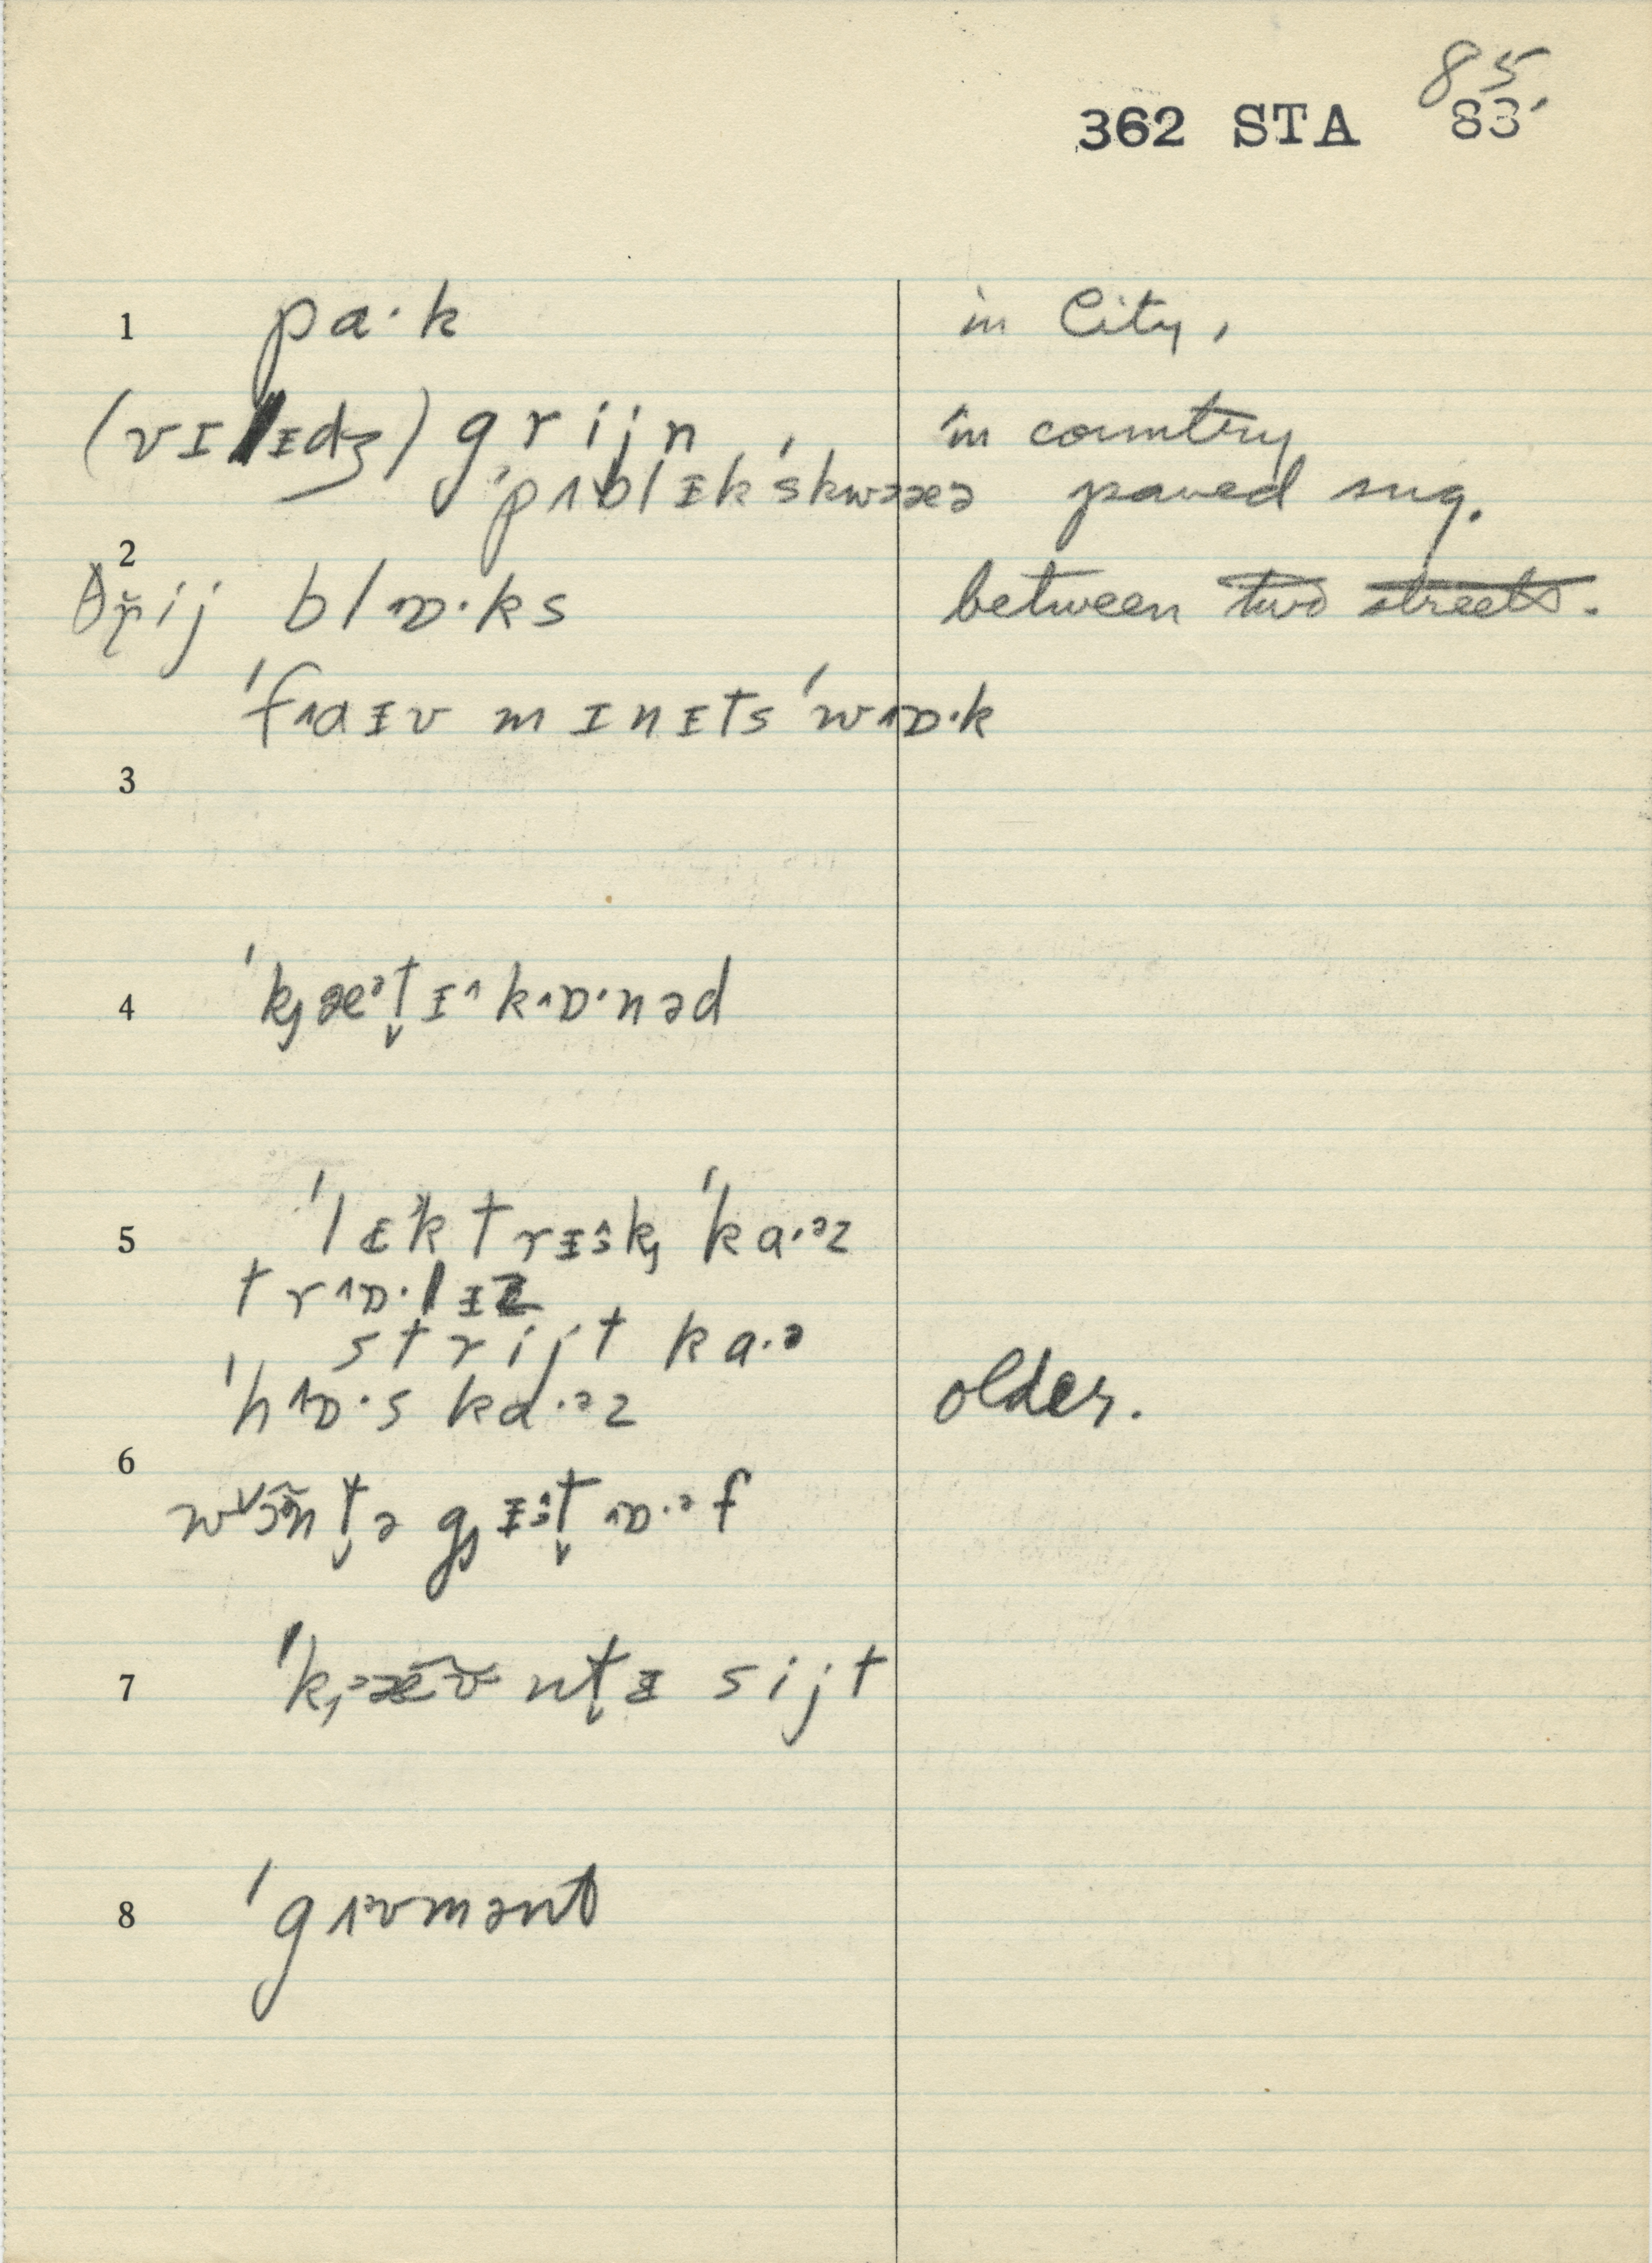 85.
362 STA 83
1 pa·k in City,
(vɪlᵻdʒ) grijn in country
ˈpʌblᵻkˈskwæə paved sug.
2
θr̥ij blɒ·ks between two streets.
ˈfaᵻv mɪnᵻts ˈwɒ·k
3
4 ˈkæᵊt̬ᵻ kɒ·nəd
5 ˈlɛktrᵻk ˈka·ᵊz
trɒ·lᵻz
strijt ka·ᵊ
ˈhɒ·s ka·ᵊz older.
6
wɔ̃nt̬ə gᵻt̬ ɒ·ᵊf
7 ˈkæ̃ʊ̃nt̬ᵻ sijt
8 ˈgʌvmənt